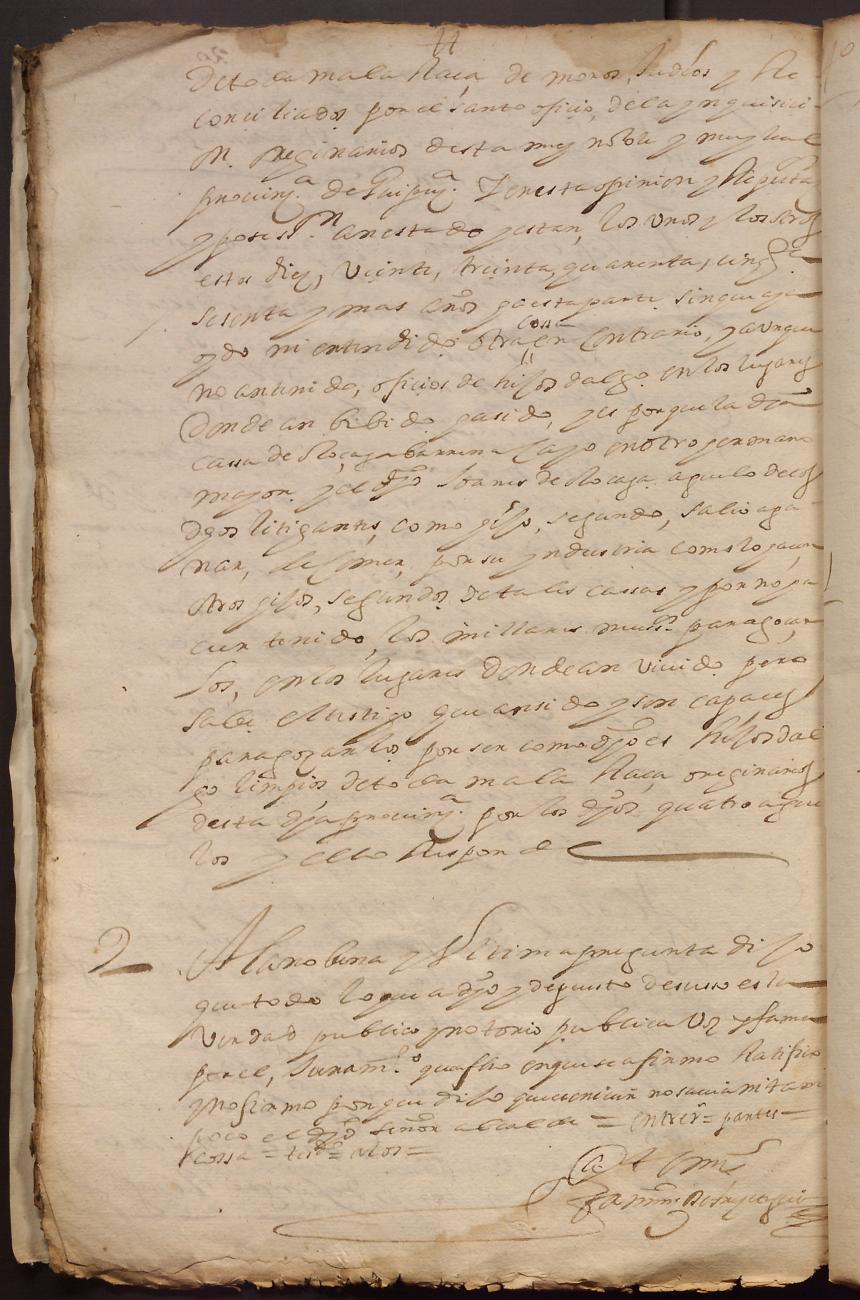 de toda mala Raça de moros, Judios y Re
conciliados por el santo oficio, de la ynquisici
on. oreginarios desta muy noble y muy leal
provinçª. de Guipuzª. Y en esta opinion y Reputa
y posesson an estado y estan, los unos y los otros
estos diez, Veinte, treinta, quarenta, cinqta
sesenta y mas años a esta parte sin que aya
oydo ni entendido otra cossa en contrario, y aunque
no an tenido, oficios de hijos dalgo en los lugares
Donde an bibido y asido, y es porque la dha
cassa de Roçaga barrena cayo en otro hermano
mayor y el dho Joanes de Rocaga. aguelo de los
dhos litigantes, como hijo, segundo, salio a ga
nar, de comer, por su yndustria como lo hacen
otros hijos, segundos de tales cassas y por no ha
ver tenido, los millares para gozar
los, en los lugares donde an vivido pero
sabe el testigo que an sido y son capaces
para gozarlos por ser como dho es hijos dal
go limpios de toda mala Raça oreginarios
desta dha provinçª. por los dhos quatro ague
los y esto Responde
2 A la nobena y Ultima pregunta dixo
que todo lo que a dho y depuesto de suso es la
verdad publico y notorio publica voz y fama
por el, Juramtº que fho en que se afirmo Ratifico
y no firmo porque dixo que no savia ni tam
poco el dho señor alcalde = entre Rs = partes =
cossa = tes = =